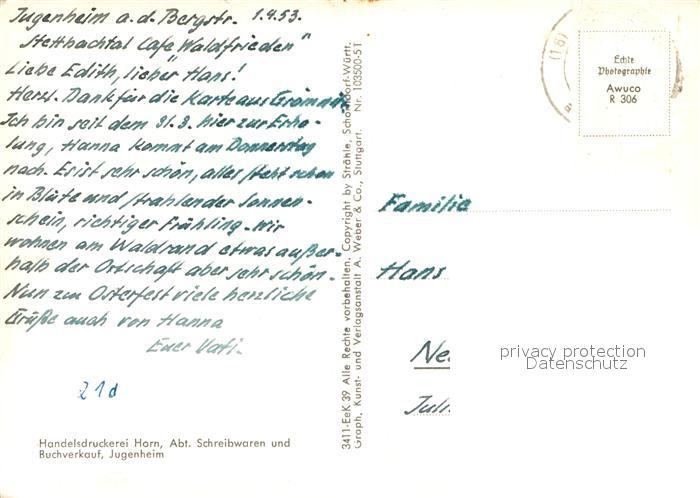 Jugenheim a.d. Bergstr. 1.4.53.
Stettbachtal Cafe „Waldfrieden"
Liebe Edith, lieber Hans!
Herzl. Dank für die Karte aus
Ich bin seit dem 31.3. hier zur Erho-
lung, Hanna kommt am Donnerstag
nach. Es ist sehr schön, alles steht schon
in Blüte und strahlender Sonnen-
schein, richtiger Frühling. Wir
wohnen am Waldrand etwas außer-
halb der Ortschaft aber sehr schön.
Nun zum Osterfest viele herzliche
Grüße auch von Hanna
Euer Vati.
21d
Handelsdruckerei Horn, Abt. Schreibwaren und
Buchverkauf, Jugenheim
3411-EeK 39 Alle Rechte vorbehalten. Copyright by Strähle, Schorndorf-Württ.
Graph. Kunst- und Verlagsanstalt A. Weber & Co., Stuttgart. Nr. 103500-51
(18)
Echte
Photographie
Awuco
R 306
Familie
Hans
Ne
privacy protection
Datenschutz